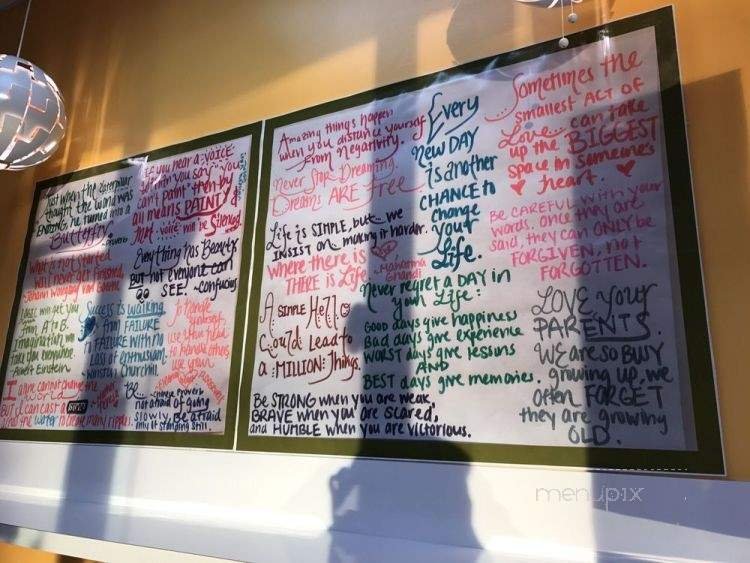 Just when the caterpillar
thought the world was
ENDING, he turned into a
Butterfly.
-Proverb
If you hear a VOICE
within you say "you
can't paint" then by
all means PAINT
that voice will be Silenced.
What is not started
will never get finished.
-Johann Wolfgang von Goethe
Everything has Beauty
But not everyone can
SEE! -Confucius
LOGIC will get you
from A to B.
imagination will
take you everywhere.
-Albert Einstein
Success is walking
from FAILURE
to FAILURE with no
Loss of enthusiasm.
Winston Churchill
To handle
yourself,
use your head
to handle others,
use your
heart.
I alone cannot change the
world
But I can cast a STONE
across the water to create many ripples.
BE
Chinese Proverb
not afraid of going
Slowly, Be afraid
only of standing still.
Amazing things happen
when you distance yourself
from Negativity.
Never Stop Dreaming.
Dreams ARE Free
Life is SIMPLE, but we
INSIST on making it harder.
where there is
Love
THERE is Life.
-Mahatma
Gandhi
A SIMPLE Hello
Could Lead to
a :MILLION: Things.
Be STRONG when you are weak,
BRAVE when you are scared,
and HUMBLE when you are victorious.
Every
NEW DAY
is another
CHANCE to
change
your
Life.
Never regret a DAY in
your Life:
GOOD days give happiness
Bad days give experience
WORST days give lessons
AND
BEST days give memories.
Sometimes the
smallest ACT OF
Love can take
up the BIGGEST
space in someone's
heart.
BE CAREFUL with your
words. once they are
said, they can ONLY be
FORGIVEN, not
FORGOTTEN.
LOVE your
PARENTS.
WE are so BUSY
growing up, we
often FORGET
they are growing
OLD.
menupix